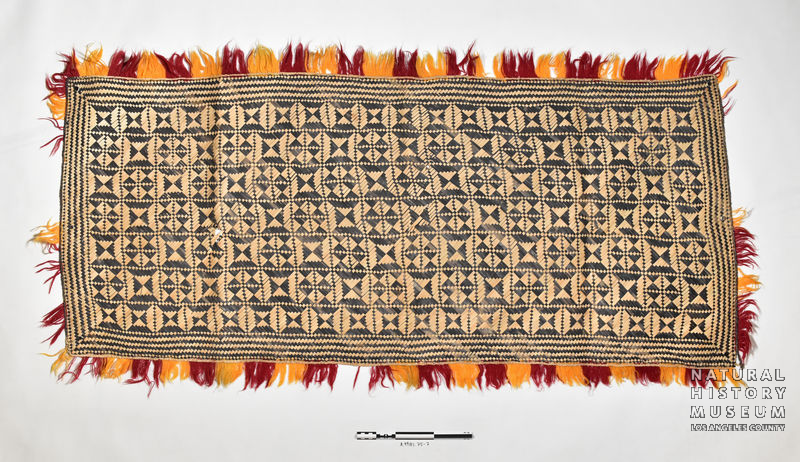 NATURAL
HISTORY
MUSEUM
LOS ANGELES COUNTY